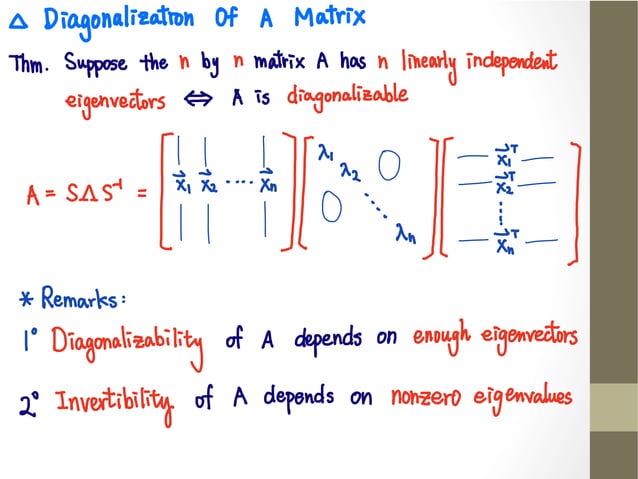 △ Diagonalization Of A Matrix
Thm. Suppose the n by n matrix A has n linearly independent
eigenvectors ⇔ A is diagonalizable
A = SΛS⁻¹ = [x⃗₁ x⃗₂ ···· x⃗ₙ] [λ₁ λ₂ ⋱ λₙ 0 0] [x⃗₁ᵀ x⃗₂ᵀ ⋮ x⃗ₙᵀ]
* Remarks:
1° Diagonalizability of A depends on enough eigenvectors
2° Invertibility of A depends on nonzero eigenvalues